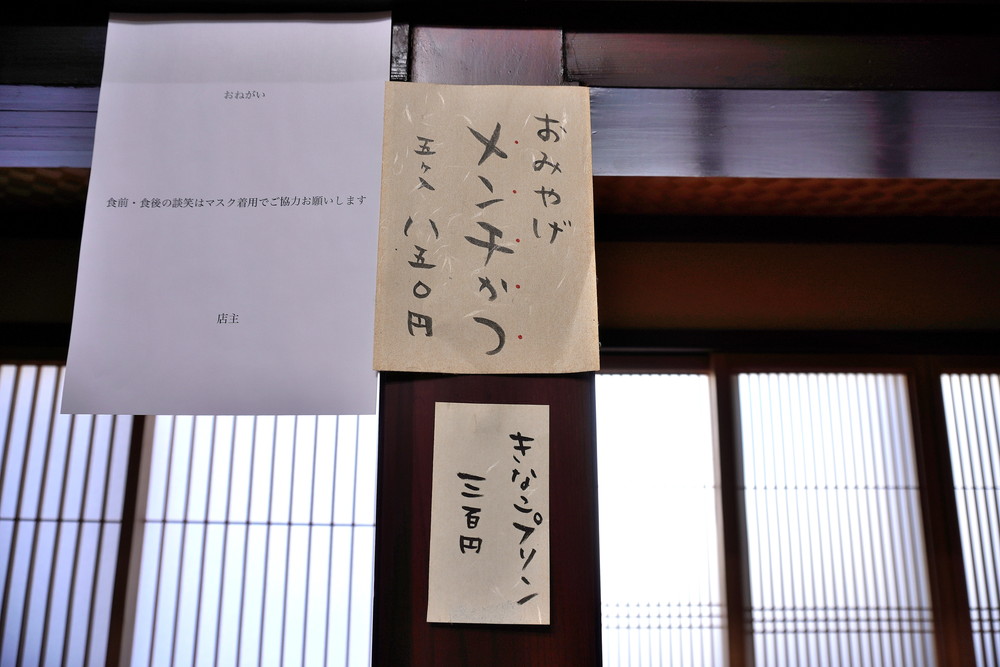 おねがい
食前・食後の談笑はマスク着用でご協力お願いします
店主
おみやげ
メンチかつ
五ヶ入 八五〇円
きなこプリン
三百円